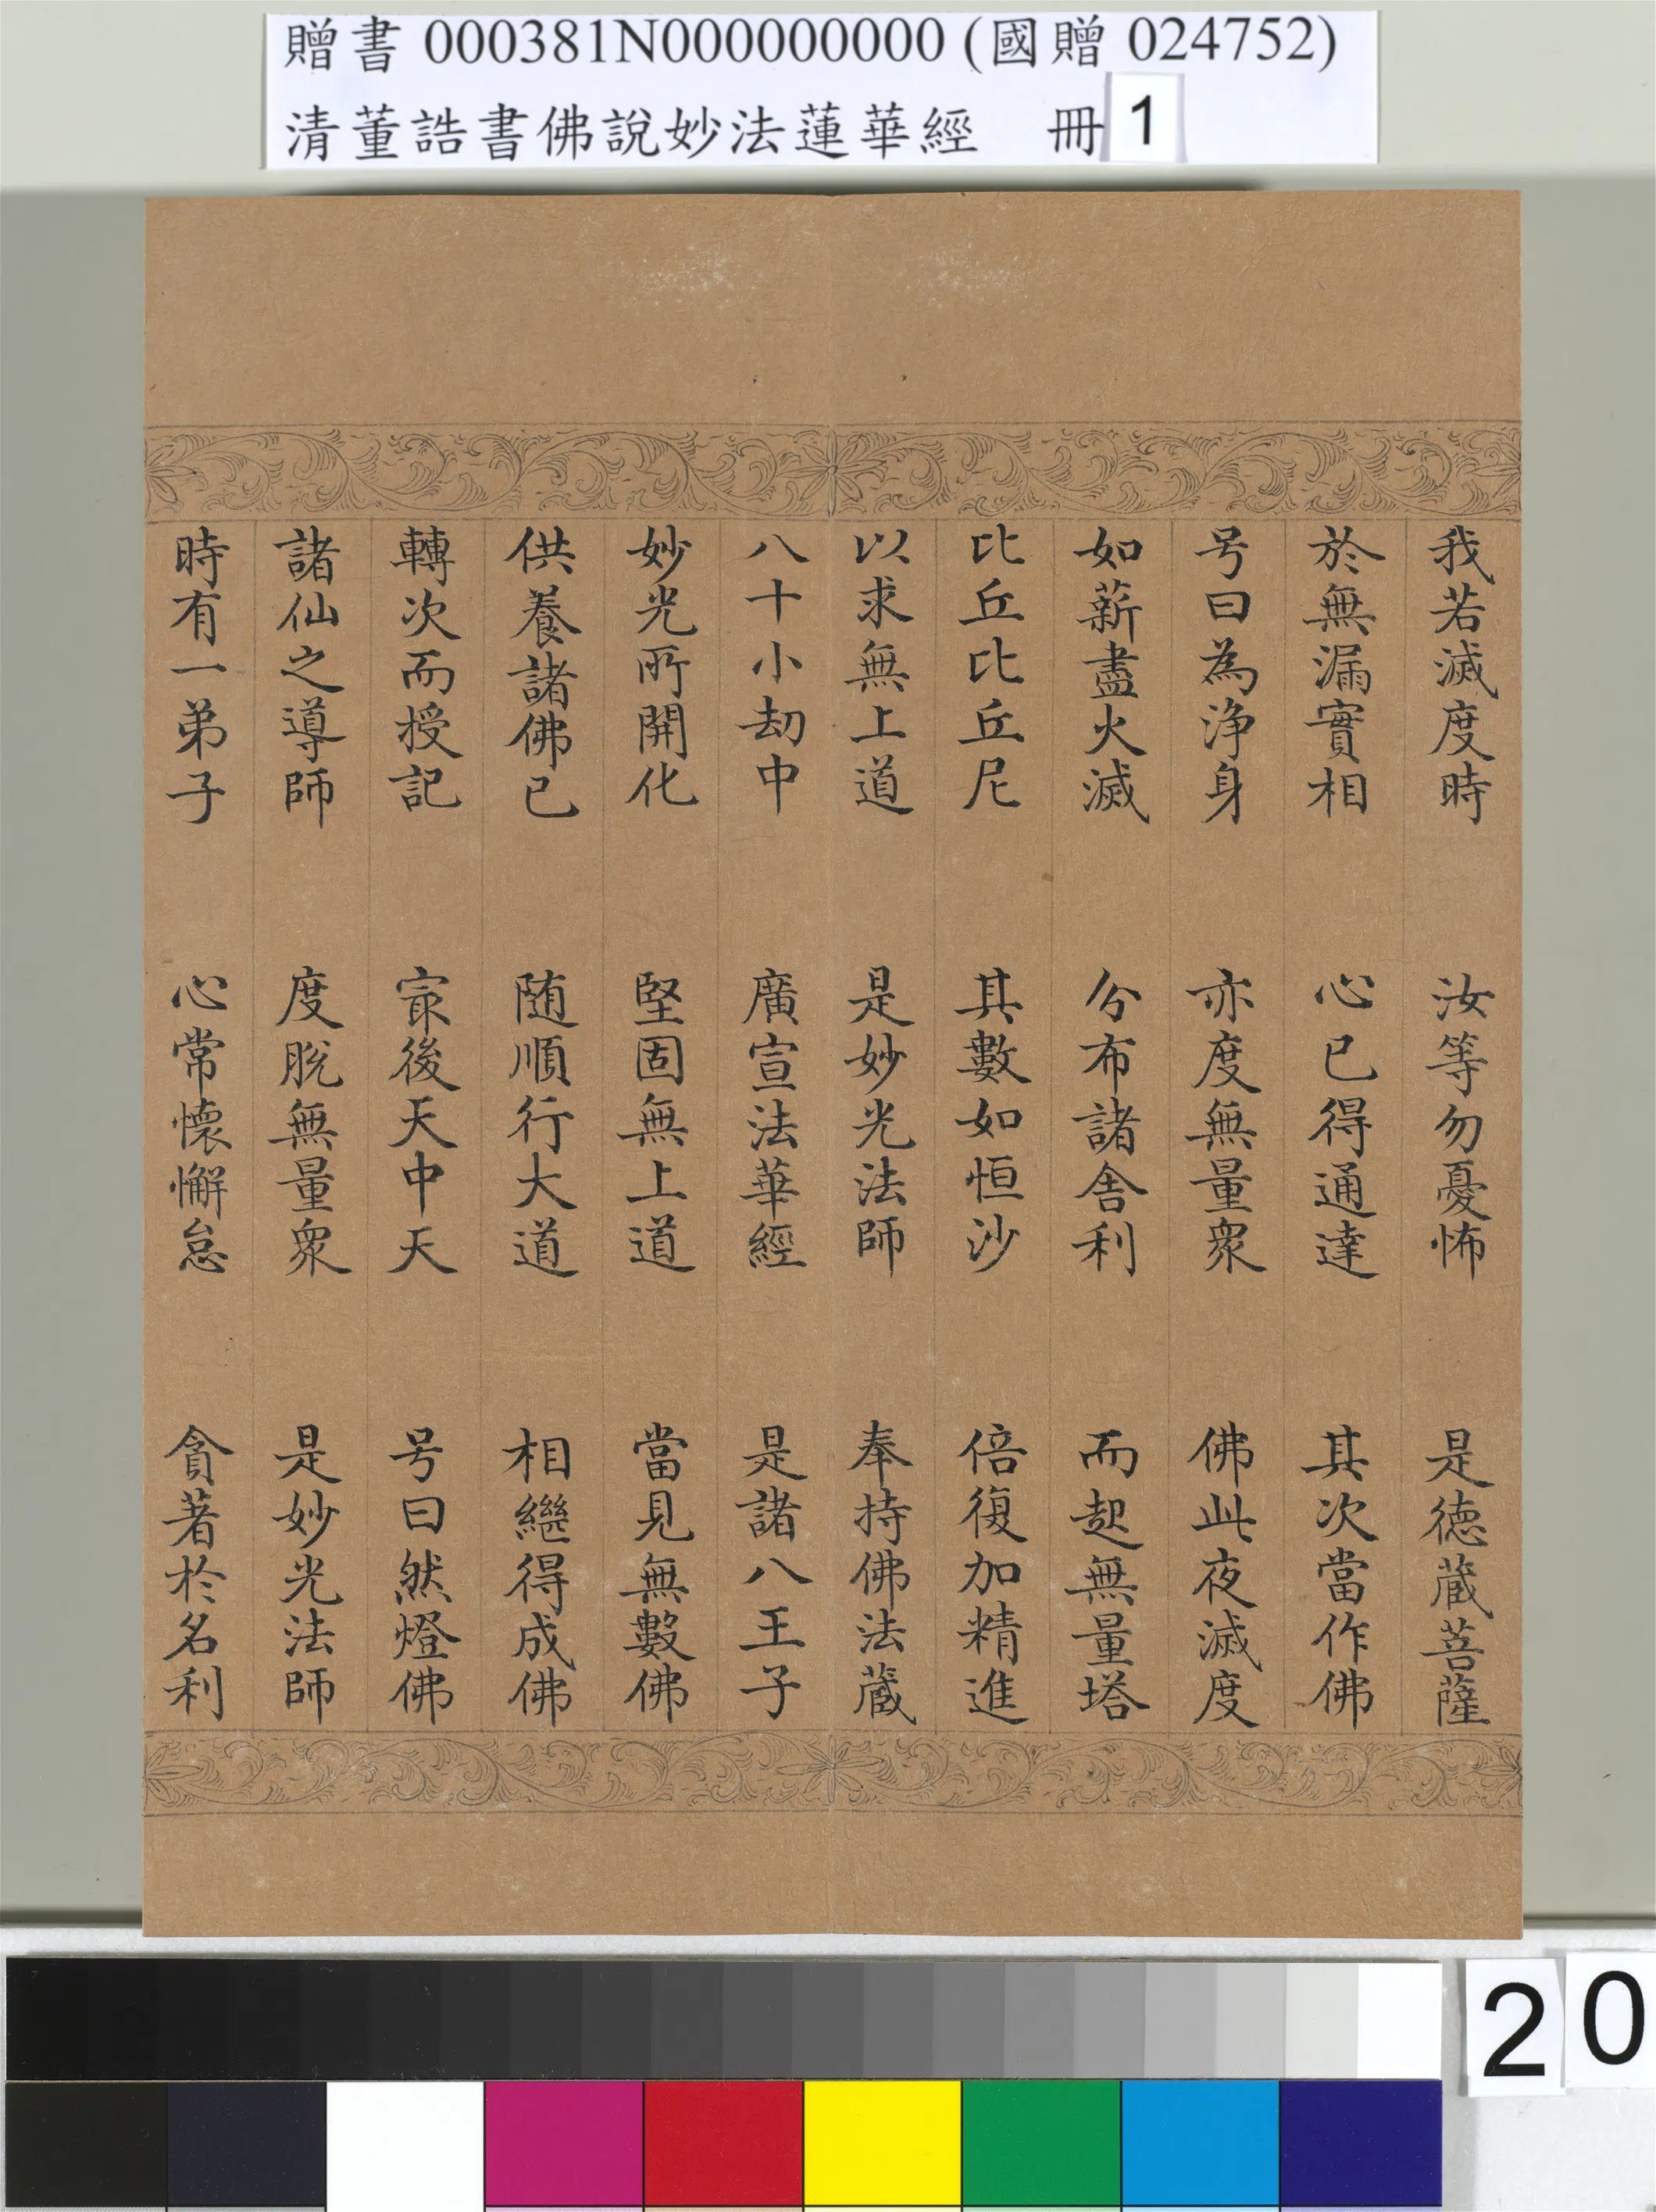 贈書 000381N000000000 (國贈 024752)
清董誥書佛說妙法蓮華經 冊 1
我若滅度時 汝等勿憂怖 是德藏菩薩
於無漏實相 心已得通達 其次當作佛
号曰為淨身 亦度無量衆 佛此夜滅度
如薪盡火滅 分布諸舍利 而起無量塔
比丘比丘尼 其數如恒沙 倍復加精進
以求無上道 是妙光法師 奉持佛法藏
八十小劫中 廣宣法華經 是諸八王子
妙光所開化 堅固無上道 當見無數佛
供養諸佛已 随順行大道 相繼得成佛
轉次而授記 㝡後天中天 号曰然燈佛
諸仙之導師 度脫無量衆 是妙光法師
時有一弟子 心常懷懈怠 貪著於名利
20